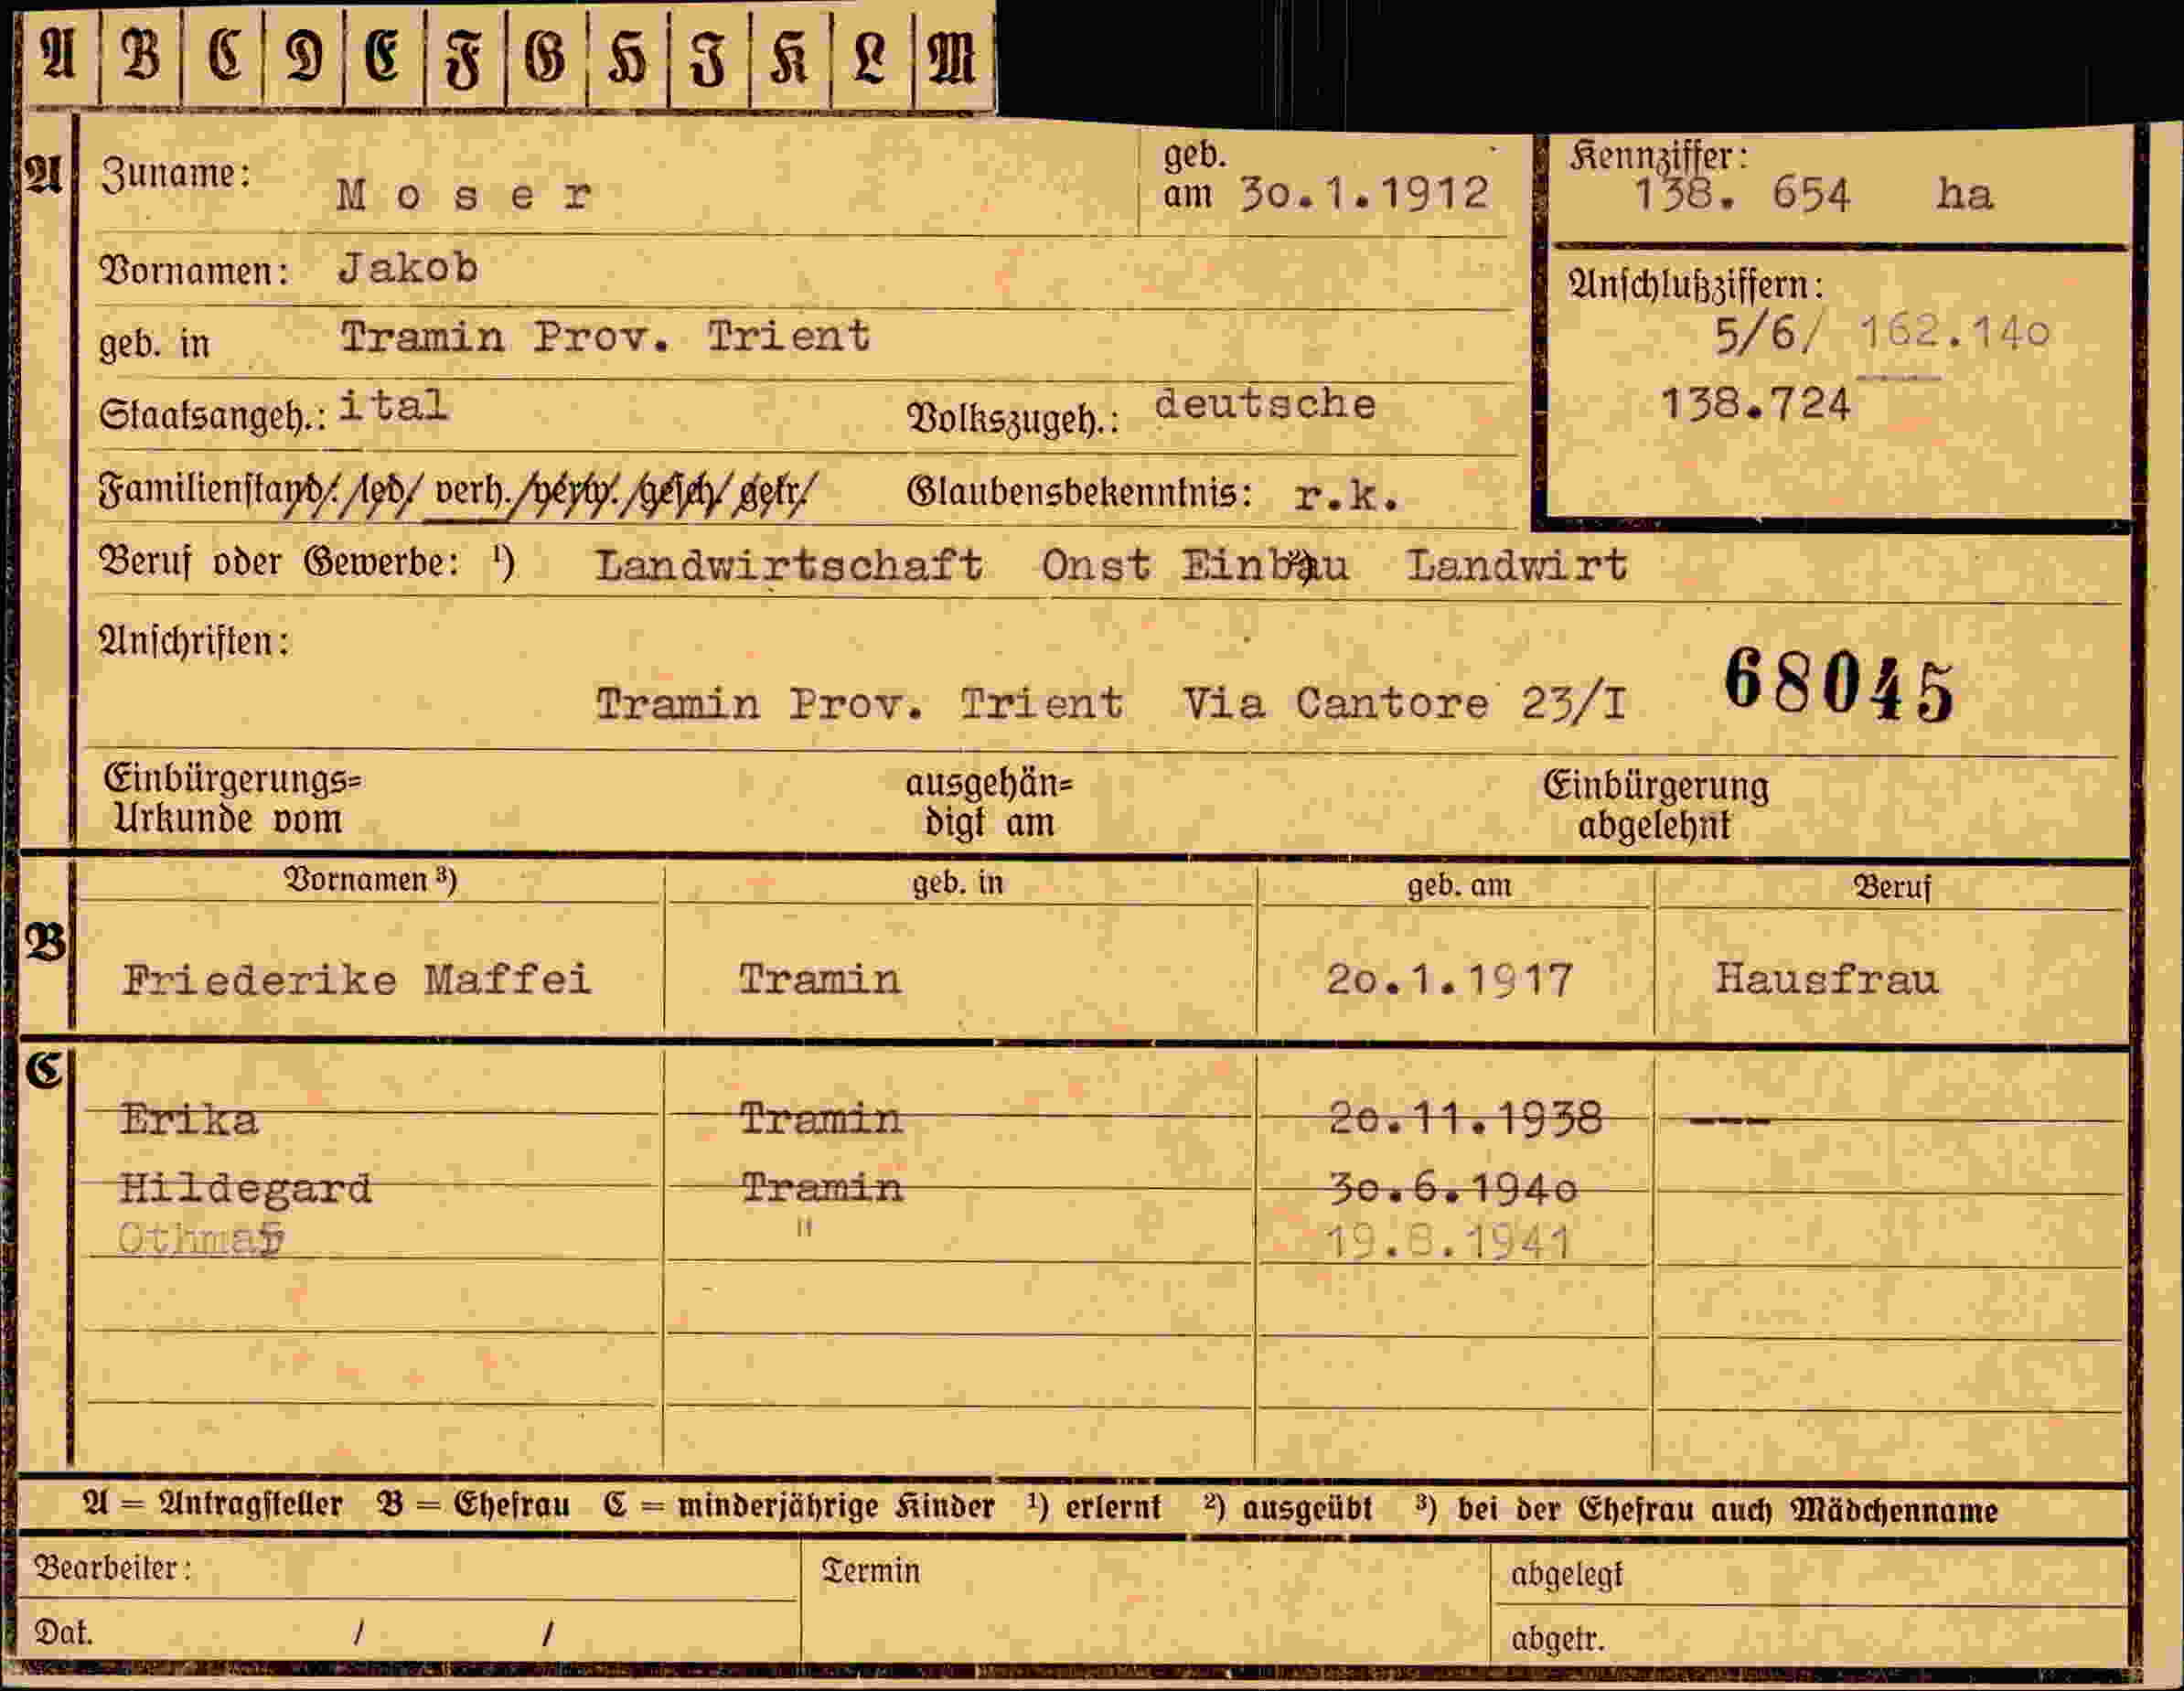 A B C D E F G H I K L M
A
Zuname: Moser
geb. am 30.1.1912
Kennziffer:
138. 654 ha
Vornamen: Jakob
Anschlußziffern:
5/6/ 162.140
138.724
geb. in Tramin Prov. Trient
Staatsangeh.: ital Volkszugeh.: deutsche
Familienstand/ led/ verh./ verw./ gesch/ getr/ Glaubensbekenntnis: r.k.
Beruf oder Gewerbe: ¹) Landwirtschaft Onst Einbau Landwirt
Anschriften:
Tramin Prov. Trient Via Cantore 23/I 68045
Einbürgerungs=
Urkunde vom
ausgehän=
digt am
Einbürgerung
abgelehnt
Vornamen ³) geb. in geb. am Beruf
B
Friederike Maffei Tramin 20.1.1917 Hausfrau
C
Erika Tramin 20.11.1938 ---
Hildegard Tramin 30.6.1940
Othmar " 19.8.1941
A = Antragsteller B = Ehefrau C = minderjährige Kinder ¹) erlernt ²) ausgeübt ³) bei der Ehefrau auch Mädchenname
Bearbeiter: Termin abgelegt
Dat. / / abgetr.